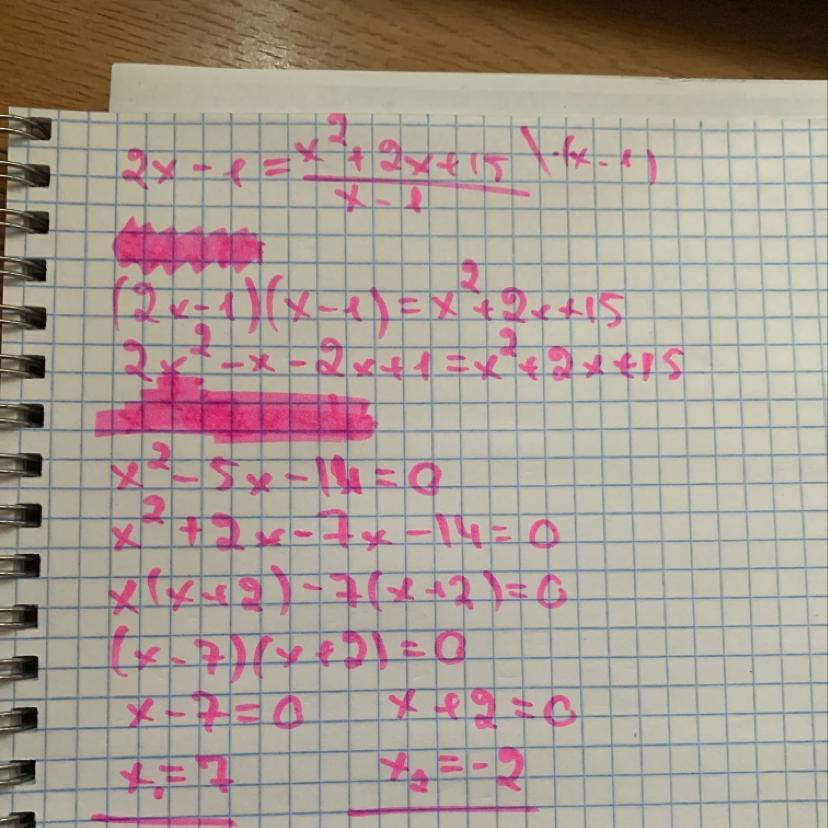 2x - 1 = x² + 2x + 15 / x - 1 \ ·(x - 1)
(2x-1)(x-1) = x² + 2x + 15
2x² - x - 2x + 1 = x² + 2x + 15
x² - 5x - 14 = 0
x² + 2x - 7x - 14 = 0
x(x+2) - 7(x+2) = 0
(x-7)(x+2) = 0
x - 7 = 0 x + 2 = 0
x₁ = 7 x₂ = -2